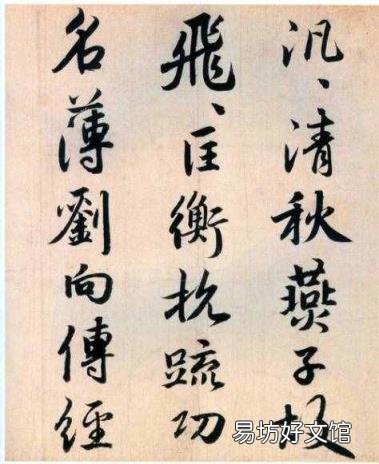 汎、清秋燕子故
飛、匡衡抗疏功
名薄劉向傳經
易坊好文馆